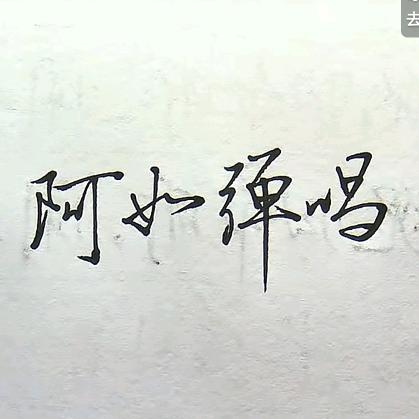 去
阿如弹唱